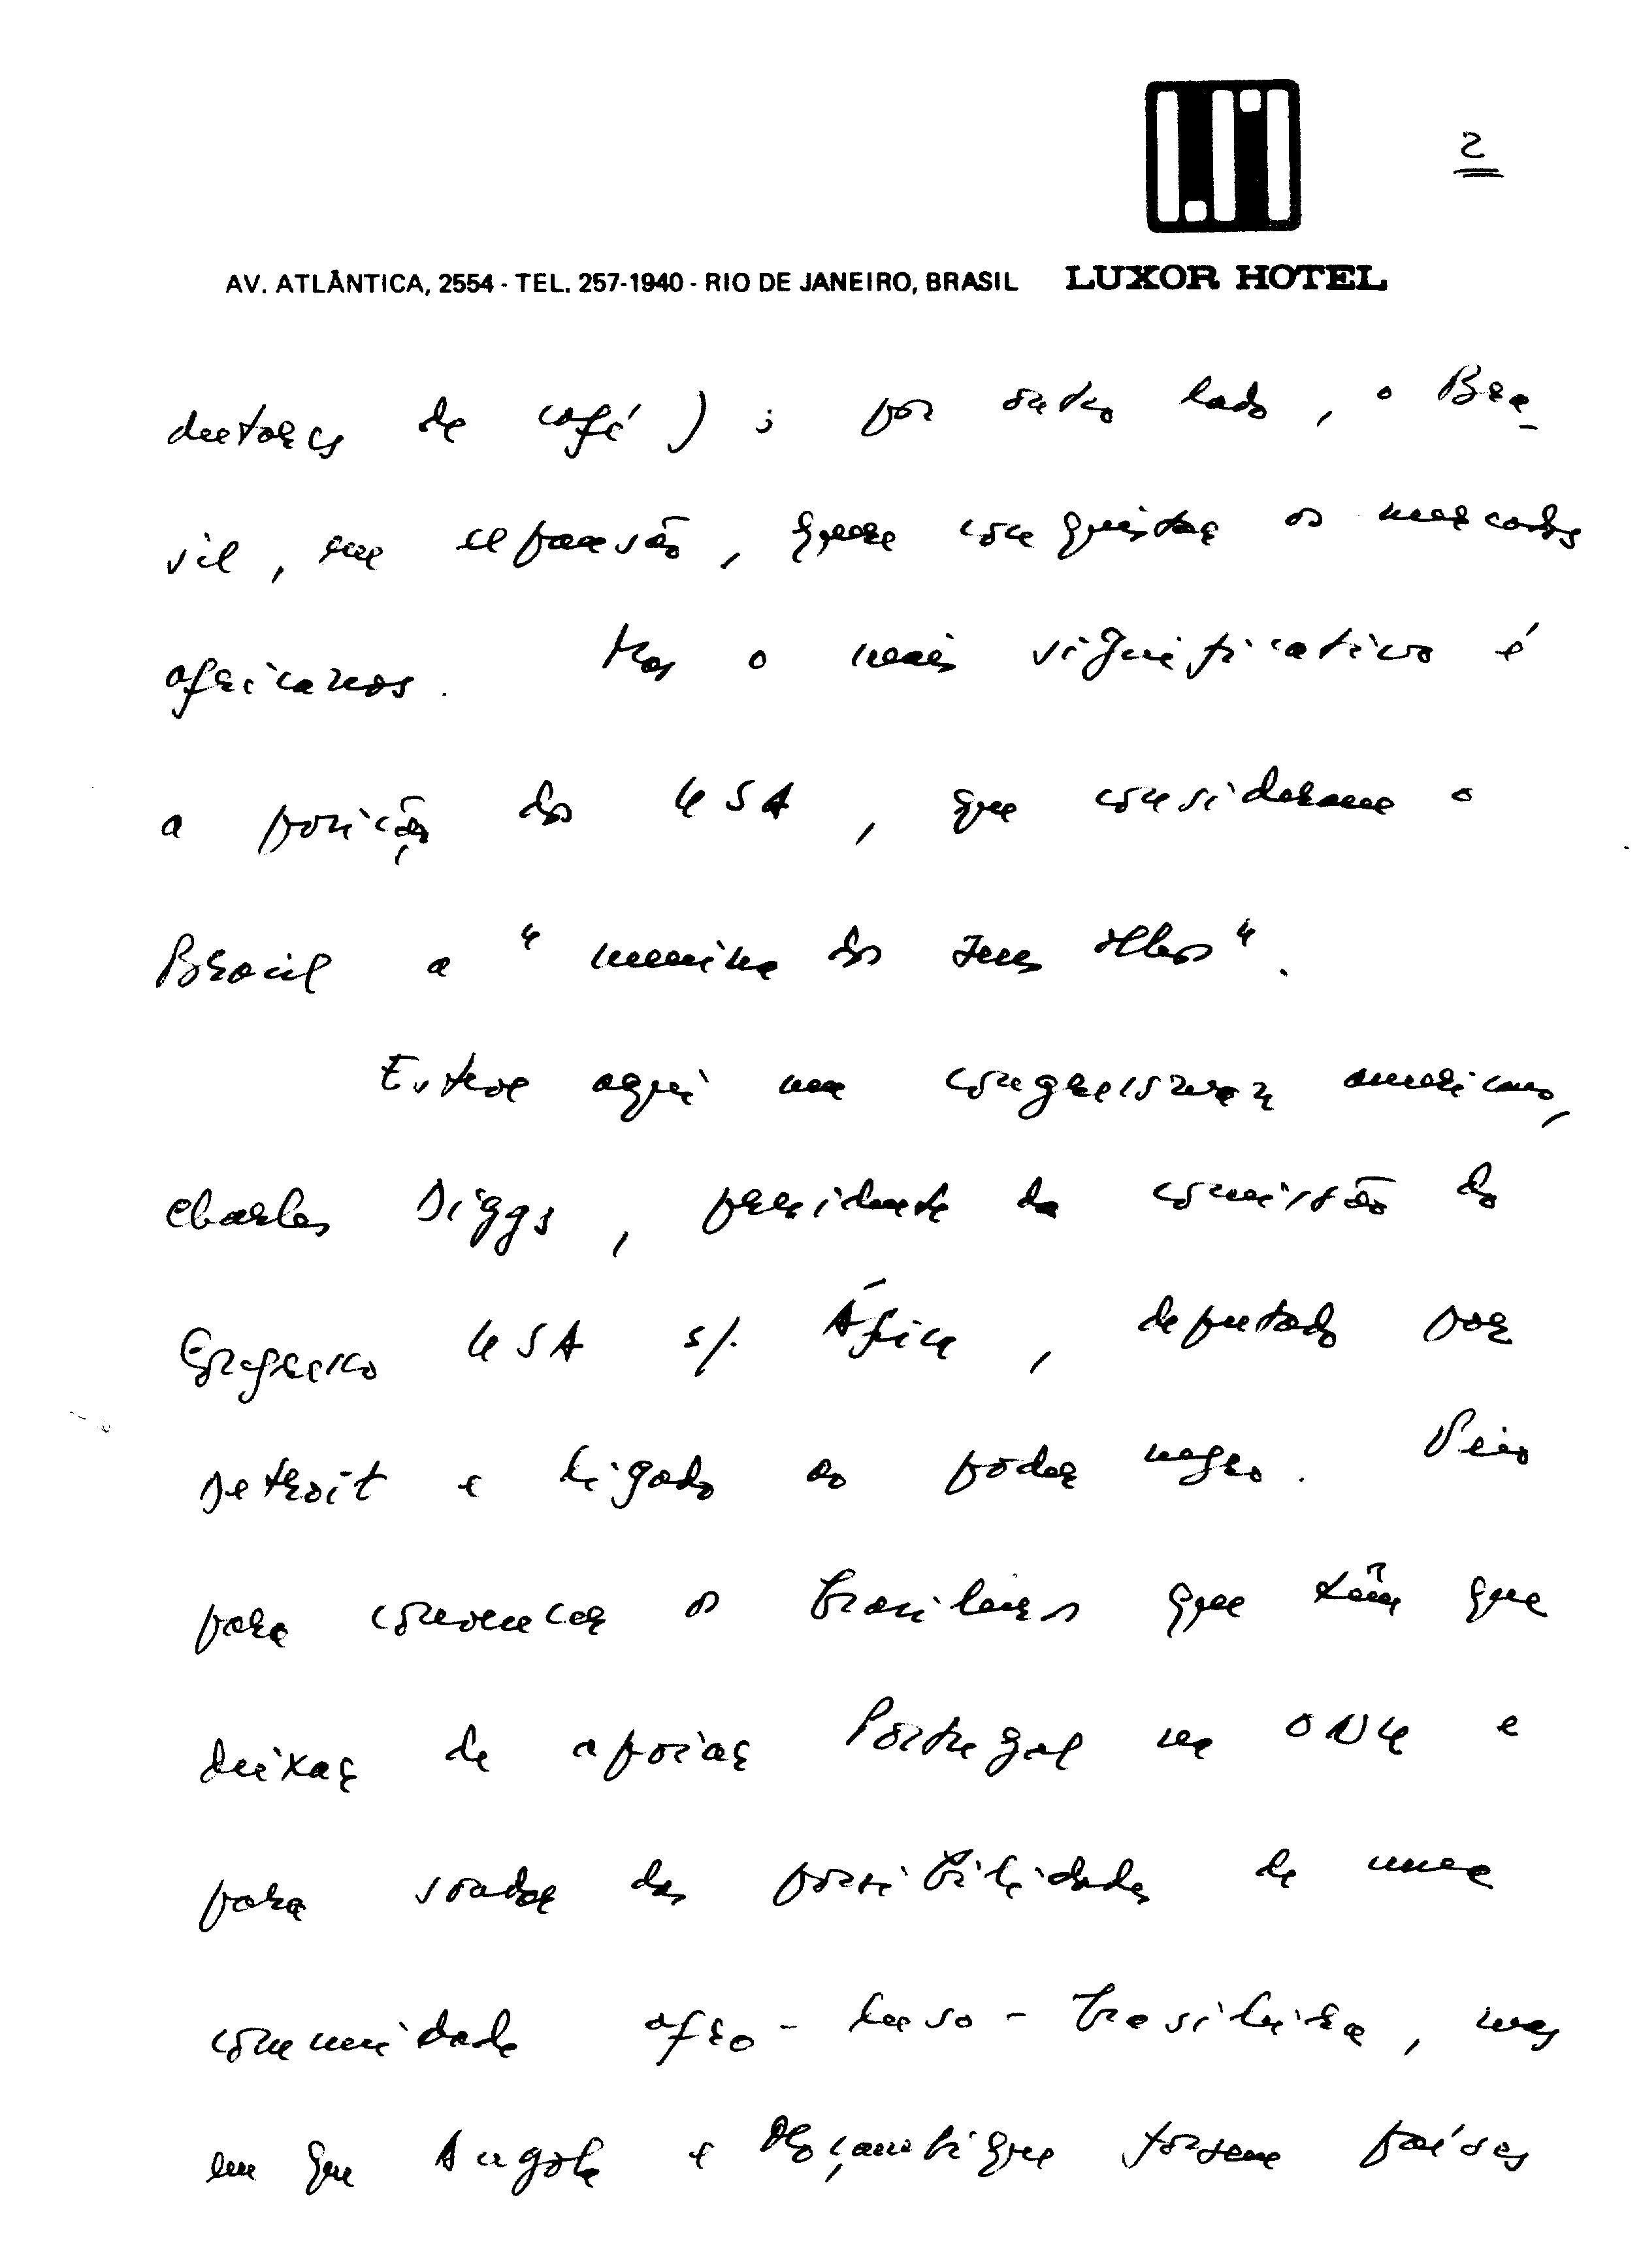 2
AV. ATLÂNTICA, 2554 - TEL. 257-1940 - RIO DE JANEIRO, BRASIL LUXOR HOTEL
dutores de café) ; por outro lado, o Bra-
sil, em expansão, quere conquistar os mercados
africanos. Mas o mais significativo é
a posição dos USA, que consideram o
Brasil a "menina dos seus olhos".
Esteve aqui um congressman americano,
Charles Diggs, presidente da comissão do
Congresso USA s/. África, deputado por
Detroit e ligado ao poder negro. Veio
para convencer os brasileiros que têm que
deixar de apoiar Portugal na ONU e
para sondar das possibilidades de uma
comunidade afro-luso-brasileira, mas
em que Angola e Moçambique fossem países